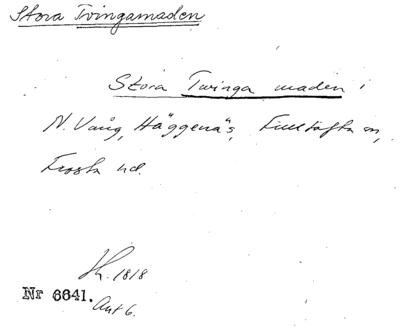 Stora Tvingamaden
Stora Twinga maden i
N. Vång, Häggenäs, Fulltofta sn,
Frosta hd.
Sk. 1818
Nr 6641. Akt 6.